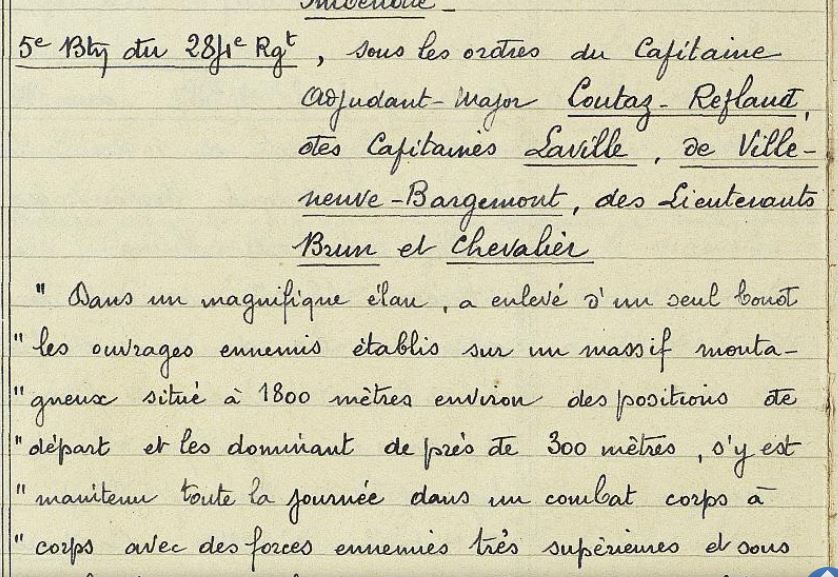 5e Btn du 284e Rgt, sous les ordres du Capitaine
Adjudant-Major Coutaz-Reflaud,
des Capitaines Laville, de Ville-
neuve-Bargemont, des Lieutenants
Brun et Chevalier
" Dans un magnifique élan, a enlevé d'un seul bout
" les ouvrages ennemis établis sur un massif monta-
" gneux situé à 1800 mètres environ des positions de
" départ et les dominant de près de 300 mètres, s'y est
" maintenu toute la journée dans un combat corps à
" corps avec des forces ennemies très supérieures et sous